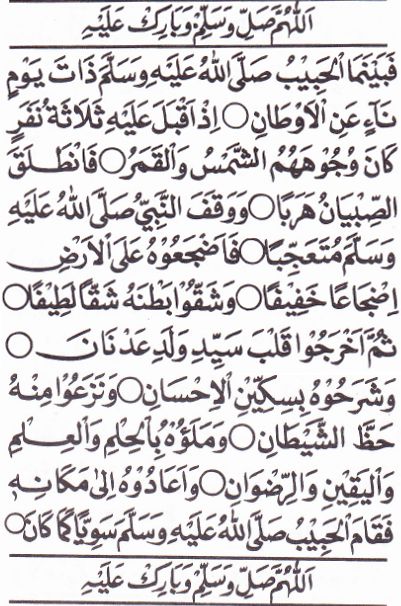 اَللّٰهُمَّ صَلِّ وَسَلِّمْ وَبَارِكْ عَلَيْهِ
فَبَيْنَمَا الْحَبِيْبُ صَلَّى اللهُ عَلَيْهِ وَسَلَّمَ ذَاتَ يَوْمٍ
نَاءٍ عَنِ الْاَوْطَانِ ○ اِذْ اَقْبَلَ عَلَيْهِ ثَلَاثَةُ نَفَرٍ
كَاَنَّ وُجُوْهَهُمُ الشَّمْسُ وَالْقَمَرُ ○ فَانْطَلَقَ
الصِّبْيَانُ هَرَبًا ○ وَوَقَفَ النَّبِيُّ صَلَّى اللهُ عَلَيْهِ
وَسَلَّمَ مُتَعَجِّبًا ○ فَاَضْجَعُوْهُ عَلَى الْاَرْضِ
اِضْجَاعًا خَفِيْفًا ○ وَشَقُّوْا بَطْنَهُ شَقًّا لَطِيْفًا ○
ثُمَّ اَخْرَجُوْا قَلْبَ سَيِّدِ وَلَدِ عَدْنَانَ ○
وَشَرَحُوْهُ بِسِكِّيْنِ الْاِحْسَانِ ○ وَنَزَعُوْا مِنْهُ
حَظَّ الشَّيْطَانِ ○ وَمَلَؤُهُ بِالْحِلْمِ وَالْعِلْمِ
وَالْيَقِيْنِ وَالرِّضْوَانِ ○ وَاَعَادُوْهُ اِلٰى مَكَانِهِ
فَقَامَ الْحَبِيْبُ صَلَّى اللهُ عَلَيْهِ وَسَلَّمَ سَوِيًّا كَمَا كَانَ ○
اَللّٰهُمَّ صَلِّ وَسَلِّمْ وَبَارِكْ عَلَيْهِ